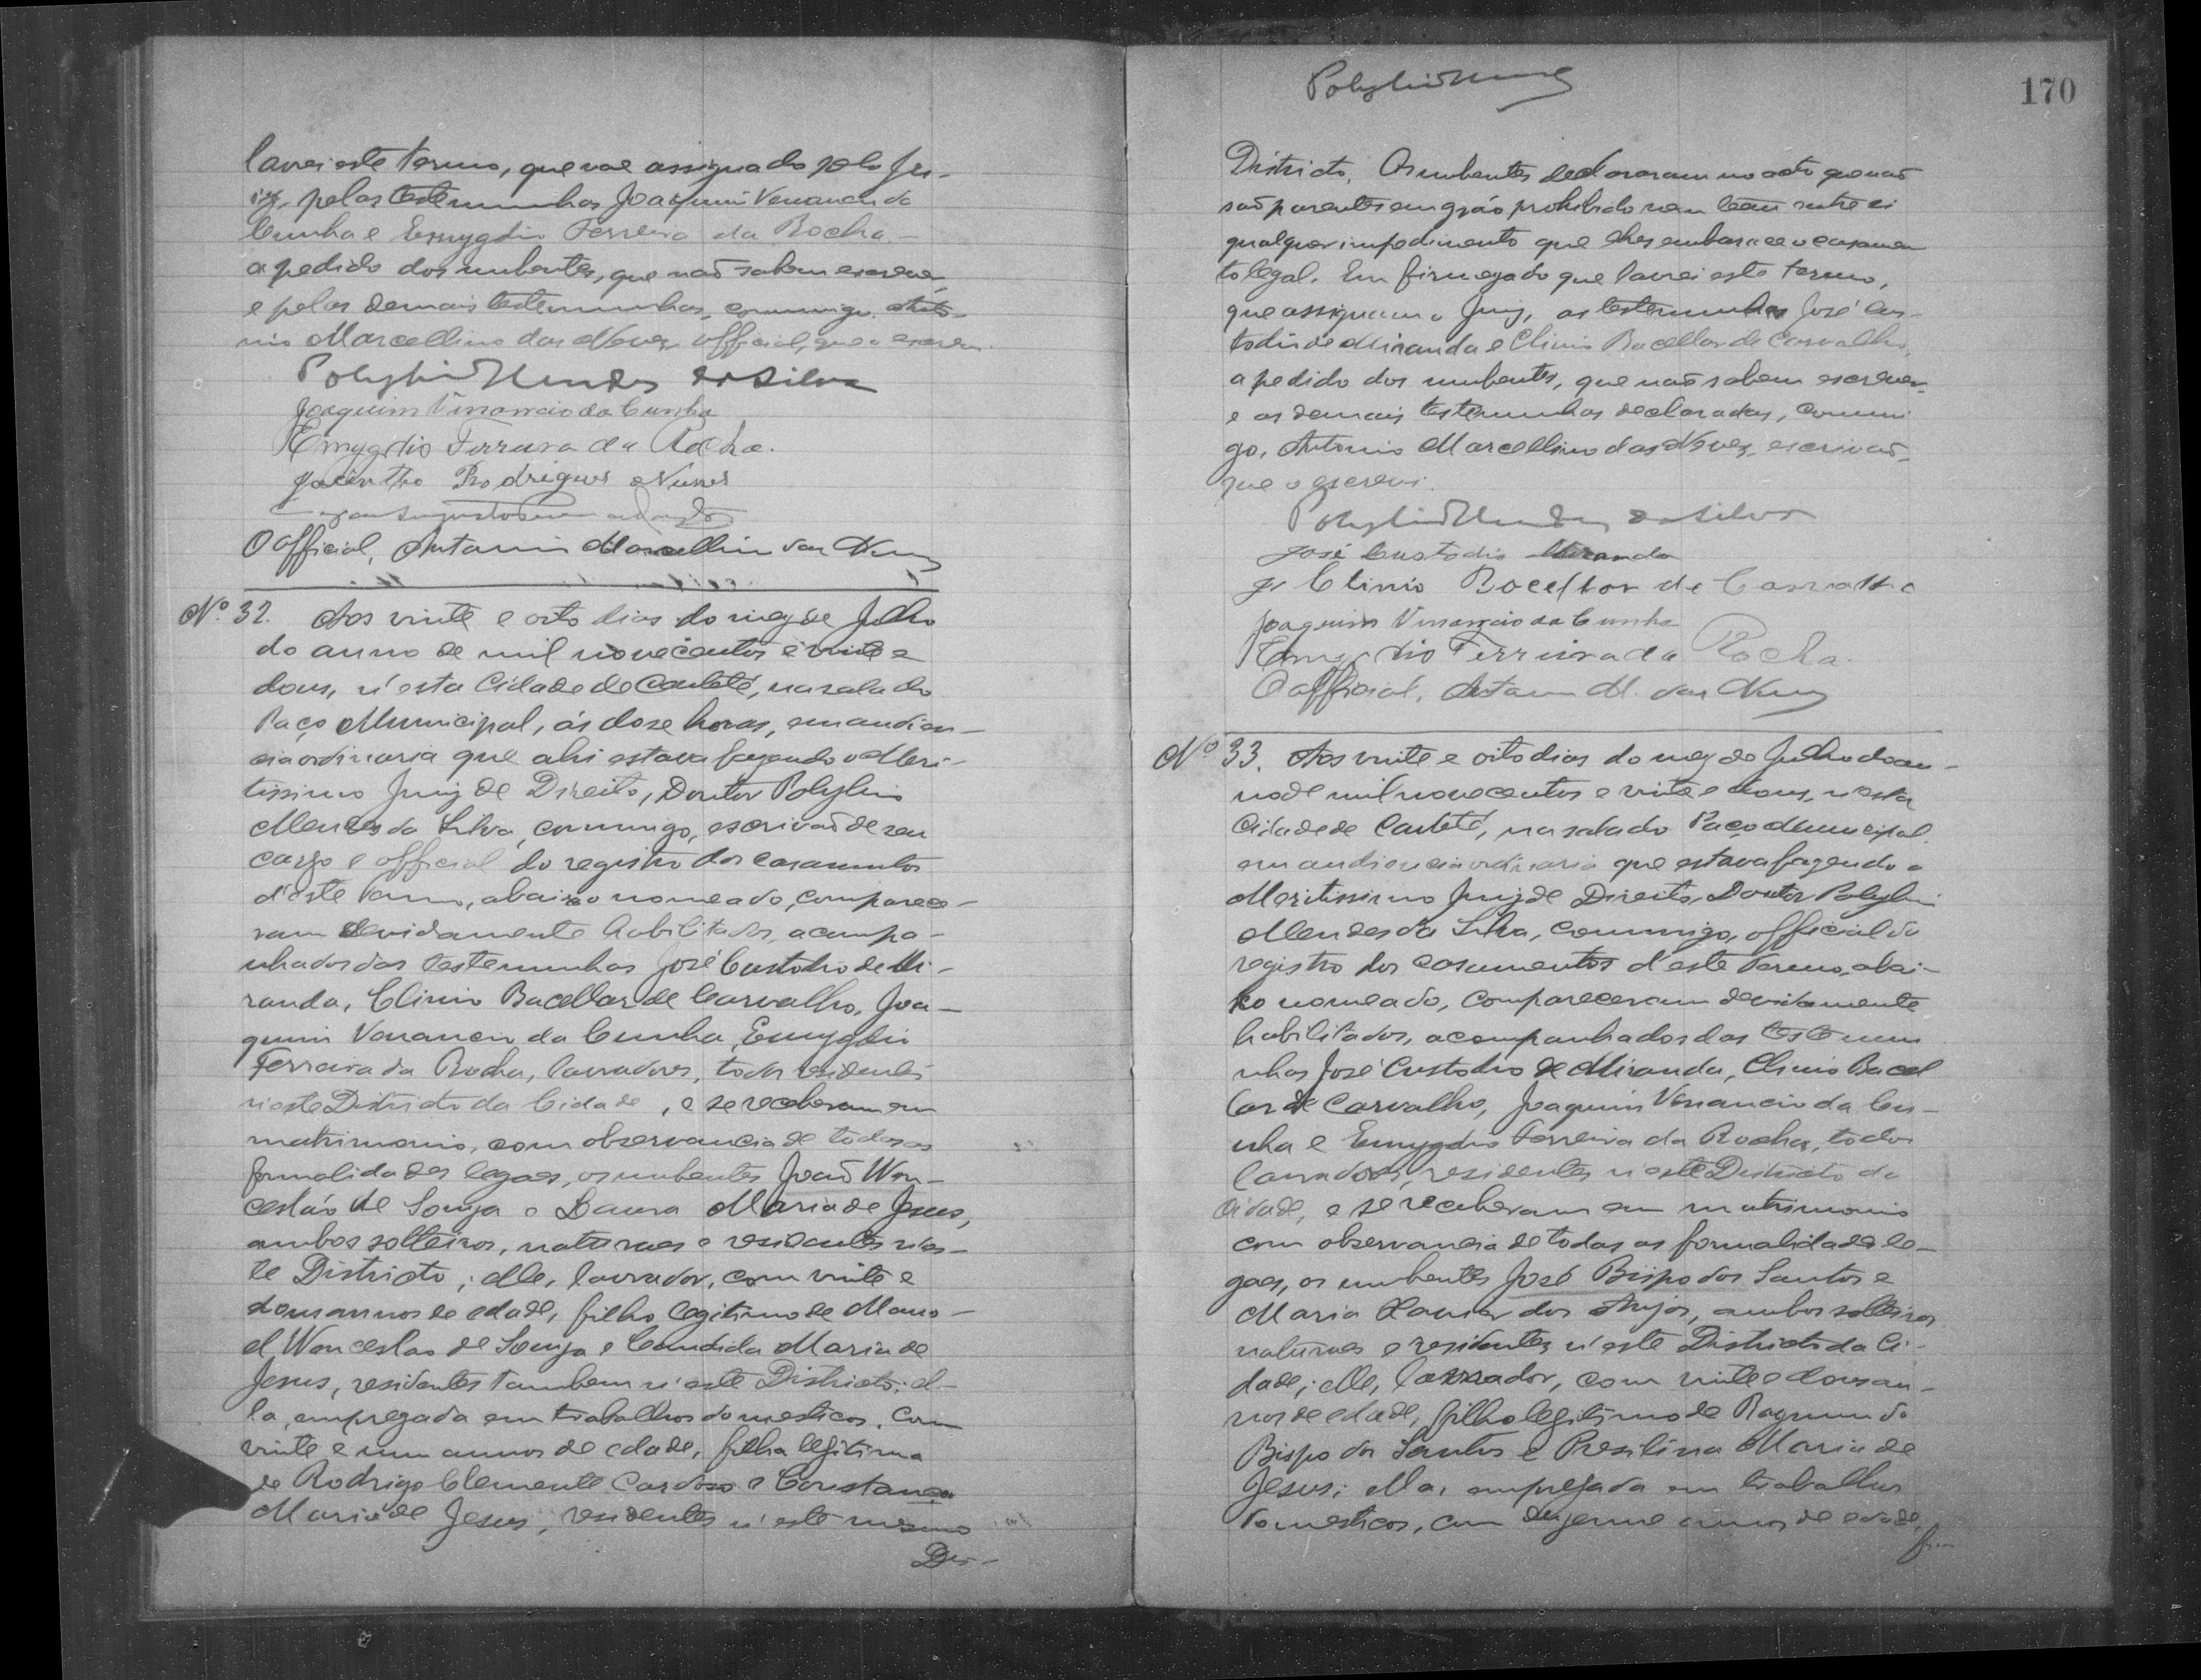 lavrei este termo, que vae assignado pelo Ju-
iz, pelas testemunhas Joaquim Venancio da
Cunha e Emygdio Ferreira da Rocha
a pedido dos nubentes, que não sabem escrever,
e pelas demais testemunhas, commigo Anto-
nio Marcellino das Neves, official, que o escrevi.
Polybio Mendes da Silva
Joaquim Venancio da Cunha
Emygdio Ferreira da Rocha.
Jacintho Rodrigues Nunes
O official, Antonio Marcellino das Neves
Nº 32. Aos vinte e oito dias do mez de Julho
do anno de mil novecentos e vinte e
dous, n'esta Cidade de Caeteté, na sala do
Paço Municipal, ás doze horas, em audien-
cia ordinaria que ahi estava fazendo o Meri-
tissimo Juiz de Direito, Doutor Polybio
Mendes da Silva, commigo, escrivaõ de seu
cargo e official do registro dos casamentos
d'este Termo, abaixo nomeado, comparece-
ram devidamente habilitados, acompa-
nhados das testemunhas José Custodio de Mi-
randa, Clinio Bacellar de Carvalho, Joa-
quim Venancio da Cunha, Emygdio
Ferreira da Rocha, lavradores, todos residentes
n'este Districto da Cidade, e se receberam em
matrimonio, com observancia de todas as
formalidades legaes, os nubentes João Wen-
cesláo de Souza e Laura Maria de Jesus,
ambos solteiros, naturaes e residentes n'es-
te Districto; elle, lavrador, com vinte e
dous annos de edade, filho legitimo de Mano-
el Wenceslao de Souza e Candida Maria de
Jesus, residentes tambem n'este Districto; el-
la, empregada em trabalhos domesticos, com
vinte e um annos de edade, filha legitima
de Rodrigo Clemente Cardoso e Constança
Maria de Jesus, residentes n'este mesmo
Dis-
Polybio Mendes
170
Districto. Os nubentes declararam no acto que não
são parentes em gráo prohibido nem teem entre si
qualquer impedimento que lhes embarace o casamen
to legal. Em firmeza do que lavrei este termo,
que assignam o Juiz, as testemunhas José Cus-
todio de Miranda e Clinio Bacellar de Carvalho,
a pedido dos nubentes, que não sabem escrever,
e as demais testemunhas declaradas, commi
go, Antonio Marcellino das Neves, escrivaõ,
que o escrevi.
Polybio Mendes da Silva
José Custodio Miranda
Clinio Bacellar de Carvalho
Joaquim Venancio da Cunha
Emygdio Ferreira da Rocha.
O official, Antonio M. das Neves
Nº 33. Aos vinte e oito dias do mez de Julho do an-
no de mil novecentos e vinte e dous, n'esta
Cidade de Caeteté, na sala do Paço Municipal,
em audiencia ordinaria que estava fazendo o
Meritissimo Juiz de Direito, Doutor Polybio
Mendes da Silva, commigo, official do
registro dos casamentos d'este Termo, abai-
xo nomeado, compareceram devidamente
habilitados, acompanhados das testemu
nhas José Custodio de Miranda, Clinio Bacel
lar de Carvalho, Joaquim Venancio da Cu-
nha e Emygdio Ferreira da Rocha, todos
lavradores, residentes n'este Districto da
Cidade, e se receberam em matrimonio
com observancia de todas as formalidades le-
gaes, os nubentes José Bispo dos Santos e
Maria dos Anjos, ambos solteiros
naturaes e residentes n'este Districto da Ci-
dade; elle, lavrador, com vinte e dous an-
nos de edade, filho legitimo de Raymundo
Bispo dos Santos e Presilina Maria de
Jesus; ella, empregada em trabalhos
domesticos, com dezenove annos de edade,